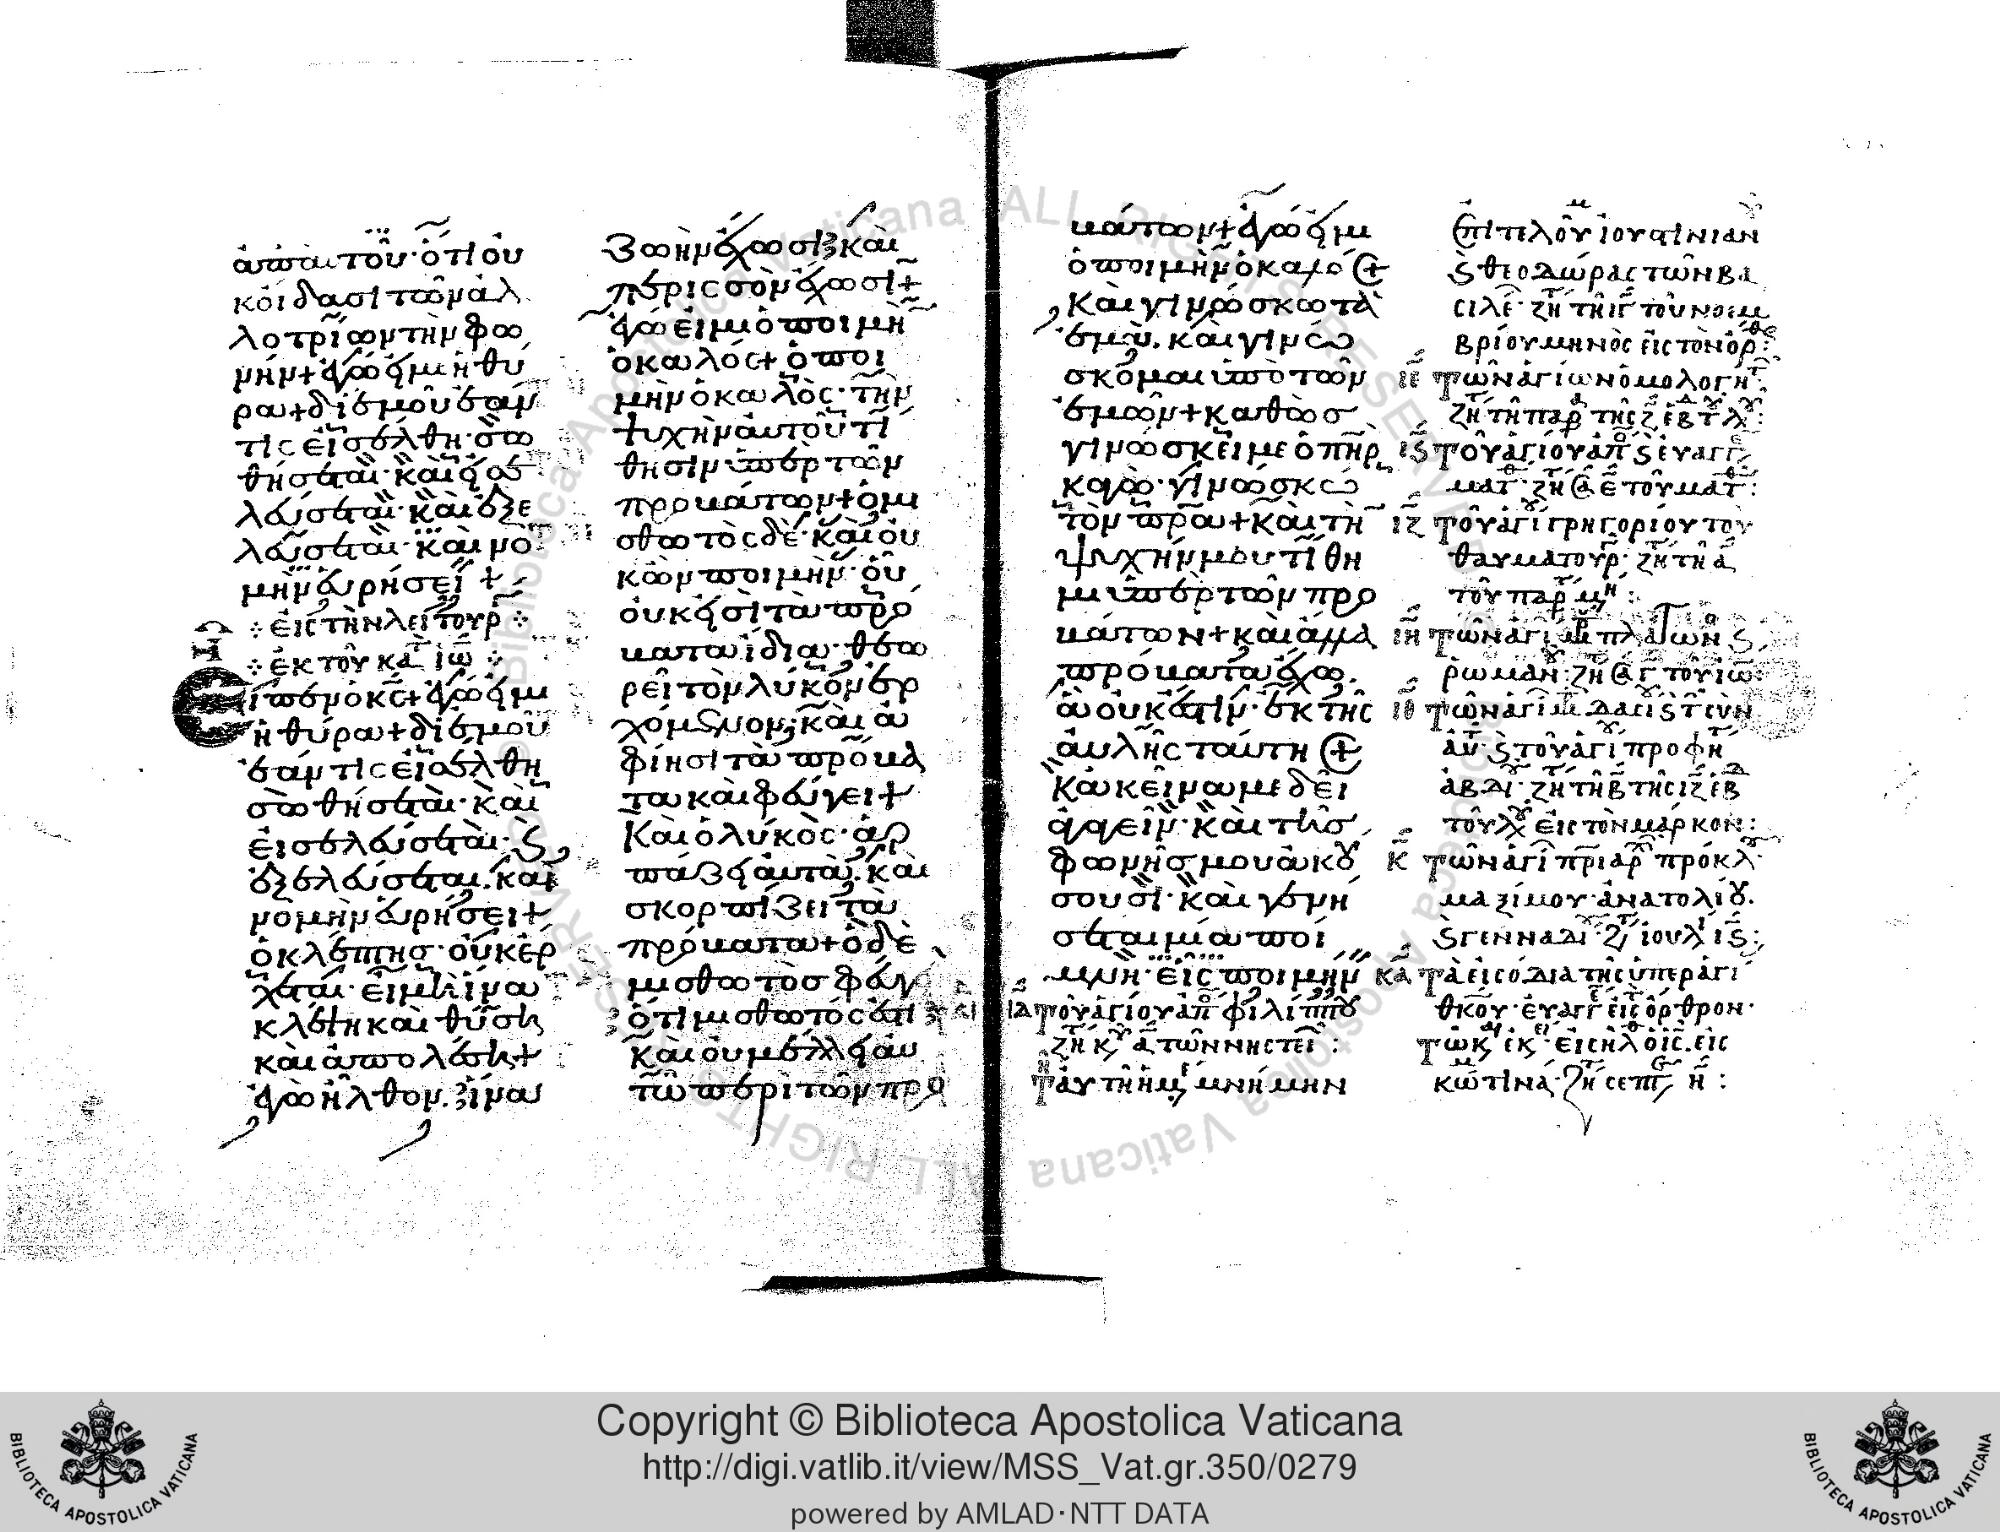 ἀπ' αὐτοῦ· ὅτι οὐ
κ οἴδασι τῶν ἀλ
λοτρίων τὴν φω
νήν + ἐγώ εἰμι ἡ θύ
ρα + δι' ἐμοῦ ἐάν
τις εἰσέλθῃ· σω
θήσεται· καὶ εἰσε
λεύσεται· καὶ ἐξε
λεύσεται· καὶ νο
μὴν εὑρήσει +
εἰς τὴν λειτουρ
ἐκ τοῦ κατ ιω
Εἶπεν ὁ κς + ἐγώ εἰμι
ἡ θύρα + δι' ἐμοῦ
ἐάν τις εἰσέλθῃ
σωθήσεται· καὶ
εἰσελεύσεται· ϗ
ἐξελεύσεται· καὶ
νομὴν εὑρήσει +
ὁ κλέπτης· οὐκ ἔρ
χεται· εἰ μὴ ἵνα
κλέψῃ καὶ θύσῃ
καὶ ἀπολέσῃ +
ἐγὼ ἦλθον. ἵνα
ζωὴν ἔχωσι· καὶ
περισσὸν ἔχωσι +
ἐγώ εἰμι ὁ ποιμὴν
ὁ καλός + ὁ ποι
μὴν ὁ καλὸς· τὴν
ψυχὴν αὐτοῦ τί
θησιν ὑπὲρ τῶν
προβάτων + ὁ μι
σθωτὸς δὲ· καὶ οὐ
κ ὢν ποιμὴν· οὗ
οὐκ εἰσὶ τὰ πρό
βατα ἴδια· θεω
ρεῖ τὸν λύκον ἐρ
χόμενον· καὶ ἀ
φίησι τὰ πρόβα
τα καὶ φεύγει +
Καὶ ὁ λύκος· ἁρ
πάζει αὐτὰ· καὶ
σκορπίζει τὰ
πρόβατα + ὁ δὲ
μισθωτὸς φεύγει
ὅτι μισθωτός ἐστι
καὶ οὐ μέλει αὐ
τῷ περὶ τῶν προ
βάτων + ἐγώ εἰμι
ὁ ποιμὴν ὁ καλός +
Καὶ γινώσκω τὰ
ἐμὰ. καὶ γινώ
σκομαι ὑπὸ τῶν
ἐμῶν + καθὼς
γινώσκει με ὁ πηρ
κἀγὼ· γινώσκω
τὸν πρα + καὶ τὴν
ψυχήν μου τίθη
μι ὑπὲρ τῶν προ
βάτων + καὶ ἄλλα
πρόβατα ἔχω.
ἃ οὐκ ἔστιν· ἐκ τῆς
αὐλῆς ταύτης +
Κἀκεῖνά με δεῖ
ἀγαγεῖν· καὶ τῆς
φωνῆς μου ἀκού
σουσι· καὶ γενή
σεται μία ποί
μνη· εἷς ποιμήν
τοῦ ἁγίου ἀπ φιλίππου
ζη κυ α τῶν νηστει :
τῇ αὐτῇ ἡμε μνήμην
ἐπιτελοῦμ ἰουστινιαν
ϗ θεοδώρας τῶν βα
σιλέ· ζη τῇ ιγ τοῦ νοεμ
βρίου μηνὸς εἰς τὸν ὄρθ :
ιε τῶν ἁγίων ὁμολογητ
ιϛ τοῦ ἁγίου ἀπ ϗ εὐαγγε
ματθ· ζη τοῦ ματθ :
ιζ τοῦ ἁγί γρηγορίου τοῦ
θαυματουρ· ζη τῇ α
τοῦ παρ μην :
ιη τῶν ἁγί μαρ πλάτωνος ϗ
ρωμαν· ζη τοῦ ιω :
ιθ τῶν ἁγί
αυτ· ϗ τοῦ ἁγί προφη
ἀβδι· ζη τῇ β τῆς ιζ εβδ
τοῦ λου εἰς τὸν μάρκον :
κ τῶν ἁγί πριαρ πρόκλου
μαξίμου· ἀνατολίου.
ϗ γενναδι· ζη ἰουλι ιϛ :
κα τὰ εἰσόδια τῆς ὑπεράγι
θκου· εὐαγγε εἰς ὄρθρον·
κώ τινα· ζη σεπτ η :
Copyright © Biblioteca Apostolica Vaticana
http://digi.vatlib.it/view/MSS_Vat.gr.350/0279
powered by AMLAD·NTT DATA
BIBLIOTECA APOSTOLICA VATICANA
BIBLIOTECA APOSTOLICA VATICANA